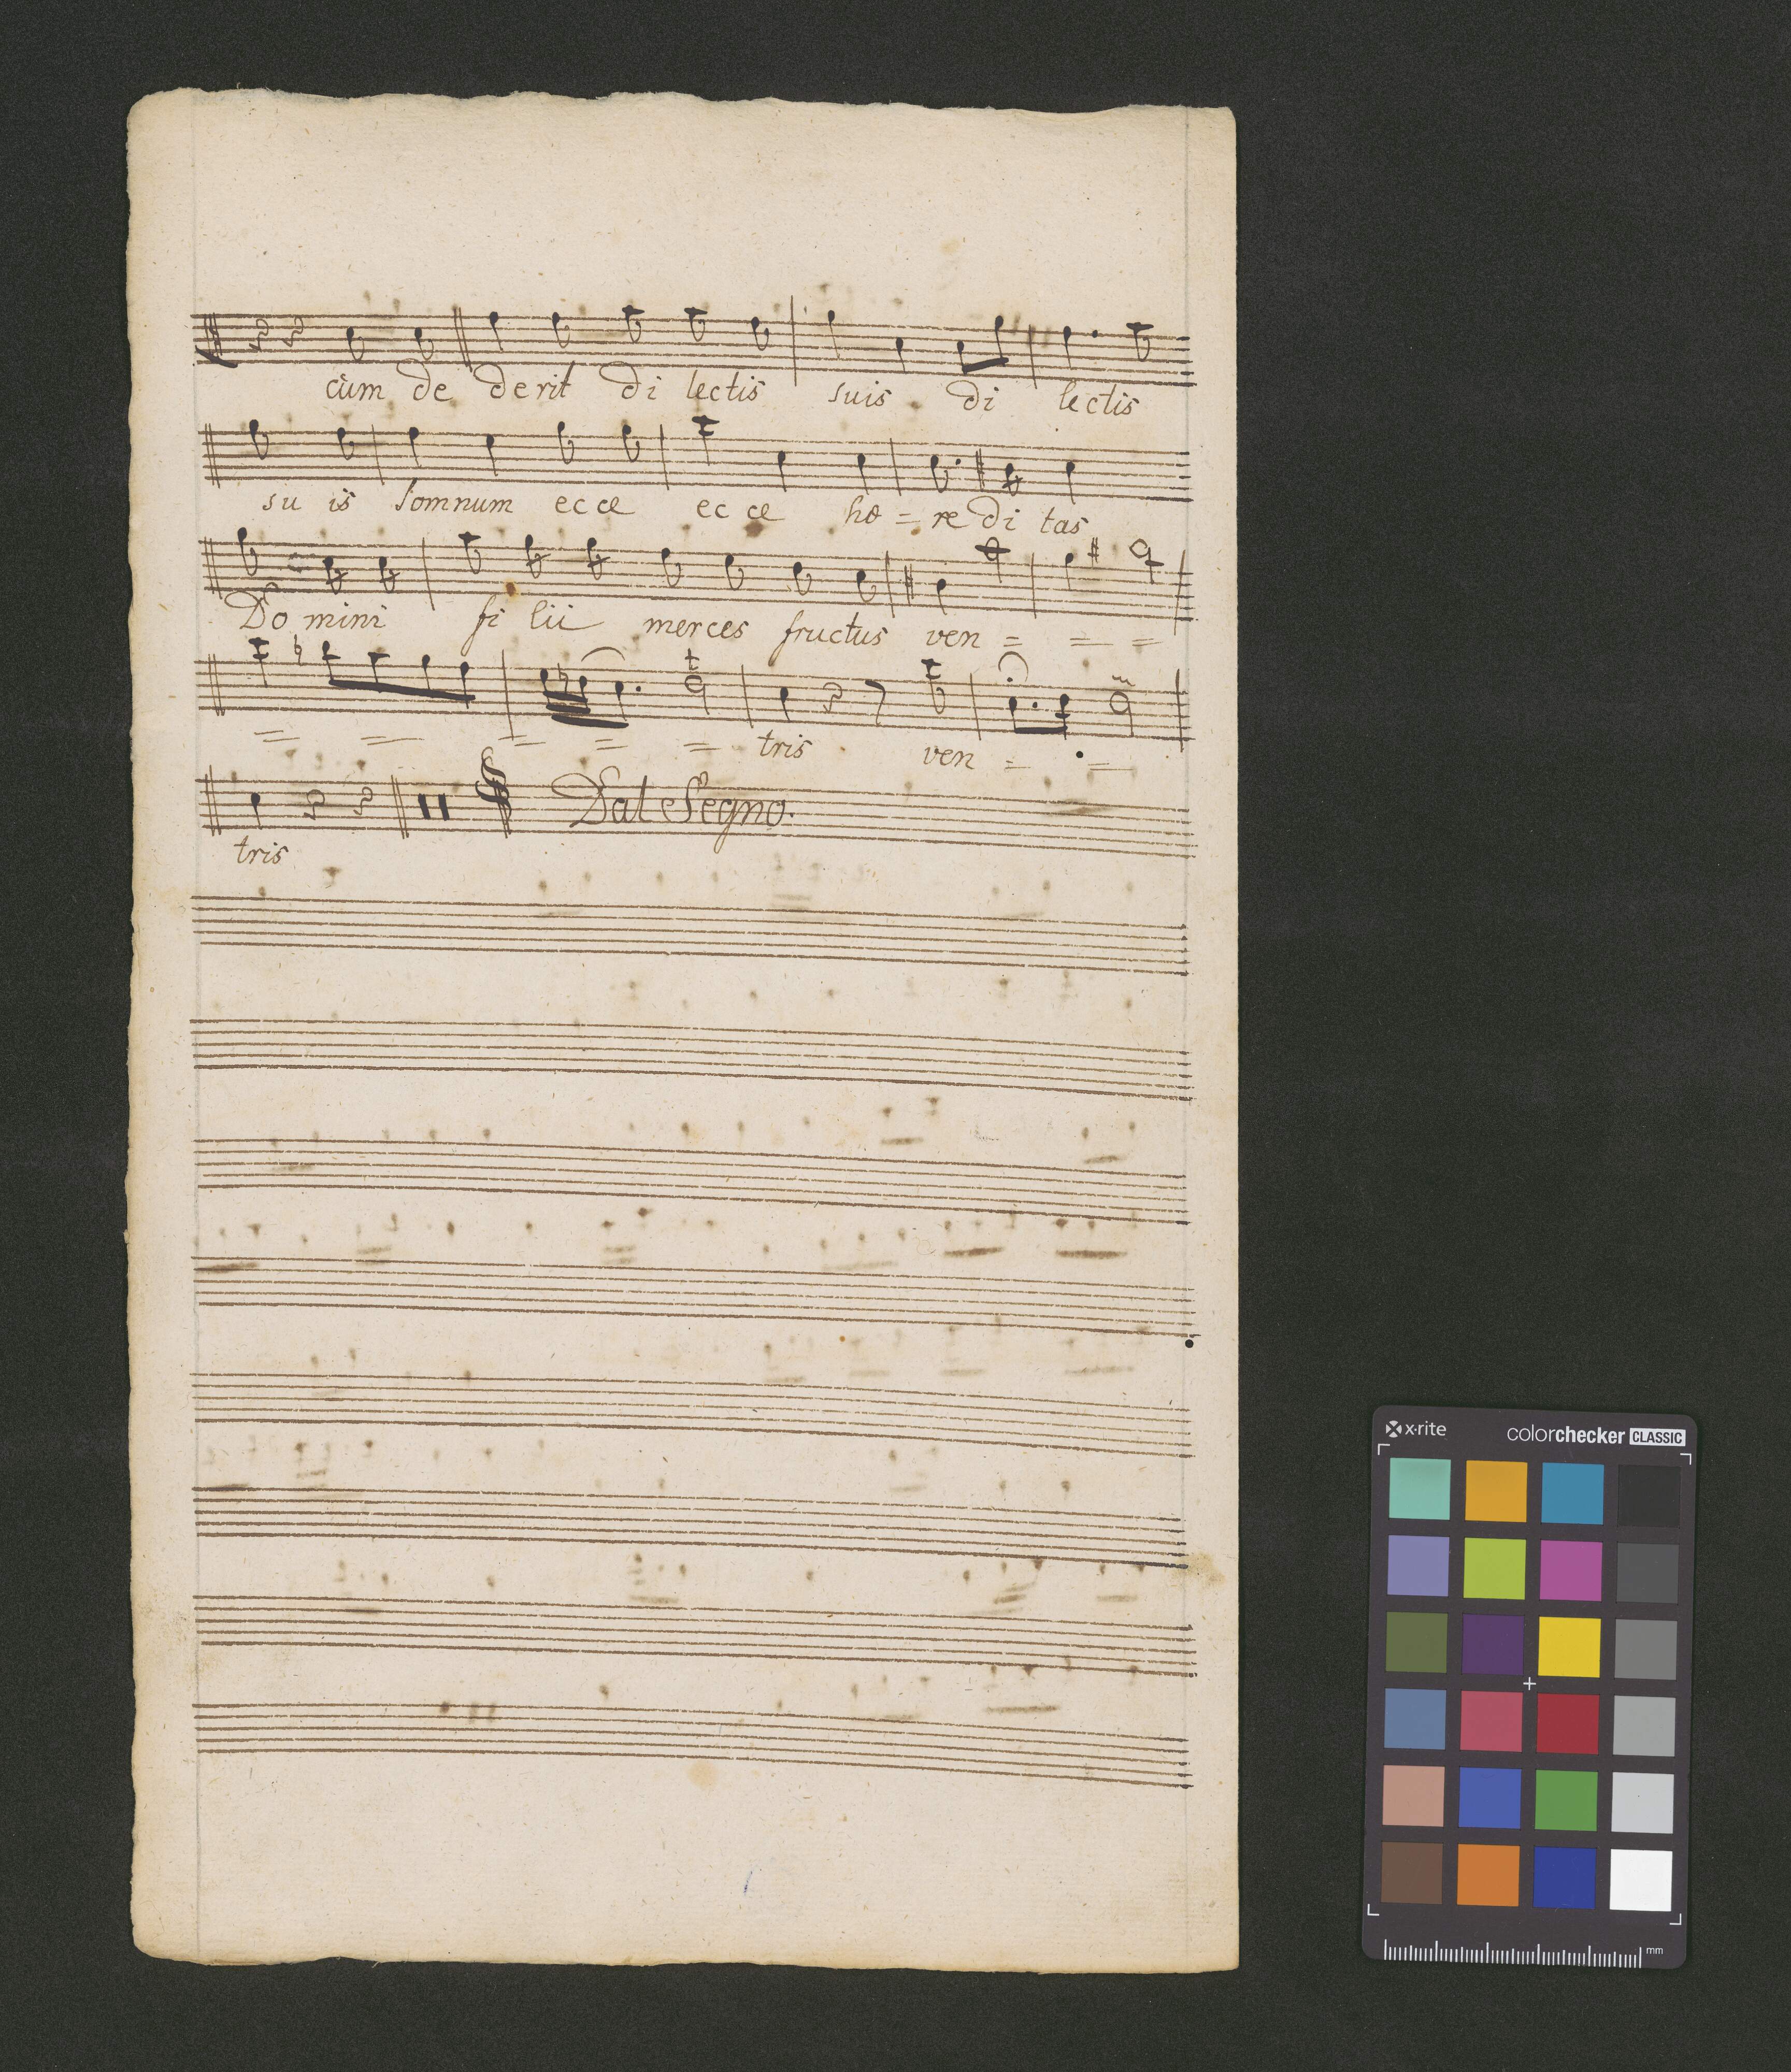 cùm de derit di lectis suis di lectis
su is somnum ecce ec ce hæ = re di tas
Do mini fi lii merces fructus ven = = =
= = = = = tris ven = =
Dal Segno.
tris
x·rite colorchecker CLASSIC
mm